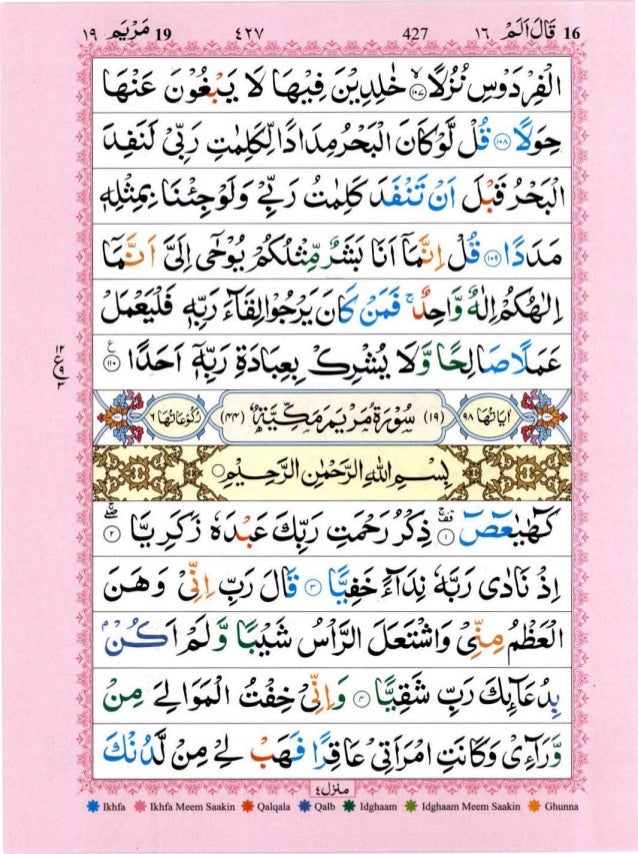 ١٩ مَرْيَم 19 ٤٢٧ 427 ١٦ قَالَ اَلَمْ 16
الْفِرْدَوْسِ نُزُلًا ۙ‏﴿۱۰۷﴾ خٰلِدِيْنَ فِيْهَا لَا يَبْغُوْنَ عَنْهَا
حِوَلًا ﴿۱۰۸﴾ قُلْ لَّوْ كَانَ الْبَحْرُ مِدَادًا لِّكَلِمٰتِ رَبِّيْ لَنَفِدَ
الْبَحْرُ قَبْلَ اَنْ تَنْفَدَ كَلِمٰتُ رَبِّيْ وَلَوْ جِئْنَا بِمِثْلِهٖ
مَدَدًا ﴿۱۰۹﴾ قُلْ اِنَّمَاۤ اَنَا بَشَرٌ مِّثْلُكُمْ يُوْحٰۤى اِلَيَّ اَنَّمَاۤ
اِلٰهُكُمْ اِلٰهٌ وَّاحِدٌ ۚ فَمَنْ كَانَ يَرْجُوْا لِقَآءَ رَبِّهٖ فَلْيَعْمَلْ
عَمَلًا صَالِحًا وَّلَا يُشْرِكْ بِعِبَادَةِ رَبِّهٖۤ اَحَدًا ﴿۱۱۰﴾
١٢ ع ٩ ٣
اٰيَاتُهَا ٩٨ (١٩) سُوْرَةُ مَرْيَمَ مَكِّيَّةٌ (٤٤) رُكُوْعَاتُهَا ٦
بِسْمِ اللهِ الرَّحْمٰنِ الرَّحِيْمِ
كٓهٰيٰعٓصٓ ﴿۱﴾ ذِكْرُ رَحْمَتِ رَبِّكَ عَبْدَهٗ زَكَرِيَّا ﴿۲﴾
اِذْ نَادٰى رَبَّهٗ نِدَآءً خَفِيًّا ﴿۳﴾ قَالَ رَبِّ اِنِّيْ وَهَنَ
الْعَظْمُ مِنِّيْ وَاشْتَعَلَ الرَّاْسُ شَيْبًا وَّلَمْ اَكُنْۢ
بِدُعَآئِكَ رَبِّ شَقِيًّا ﴿۴﴾ وَاِنِّيْ خِفْتُ الْمَوَالِيَ مِنْ
وَّرَآءِيْ وَكَانَتِ امْرَاَتِيْ عَاقِرًا فَهَبْ لِيْ مِنْ لَّدُنْكَ
منزل ٤
Ikhfa Ikhfa Meem Saakin Qalqala Qalb Idghaam Idghaam Meem Saakin Ghunna